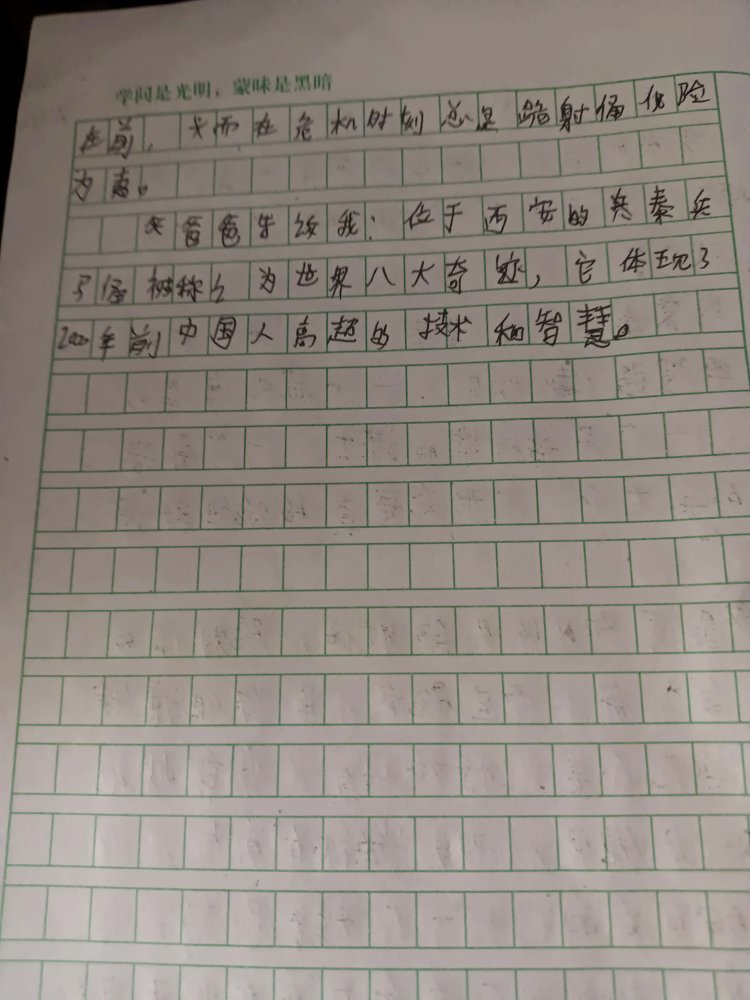 学问是光明，蒙昧是黑暗
在前，然而在危机时刻总是跪射俑化险
为夷。
爸爸告诉我：位于西安的 秦兵
马俑被称 为世界八大奇迹，它体现了
2000年前中国人高超的技术和智慧。